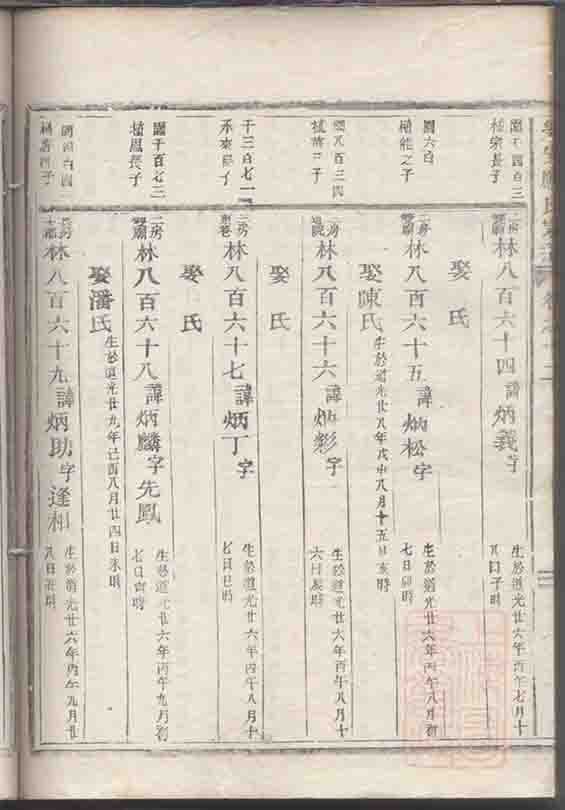 園千四百三
二房
林八百六十四諱炳義字
生於道光廿六年丙午七月十
八日子時
娶氏
園六百
二房
林八百六十五諱炳松字
生於道光廿六年丙午八月初
七日卯時
娶陳氏
生於道光廿八年戊申八月十五日亥時
林八百六十六諱炳彩字
生於道光廿六年丙午八月十
六日亥時
娶氏
千三百七一
林八百六十七諱炳丁字
生於道光廿六年丙午八月十
七日巳時
娶氏
園千百七三
桂鳳長子
二房
林八百六十八諱炳麟字先鳳
生於道光廿六年丙午九月初
七日寅時
娶潘氏
生於道光廿九年己酉八月廿四日未時
林八百六十九諱炳助字逢相
生於道光廿六年丙午九月廿